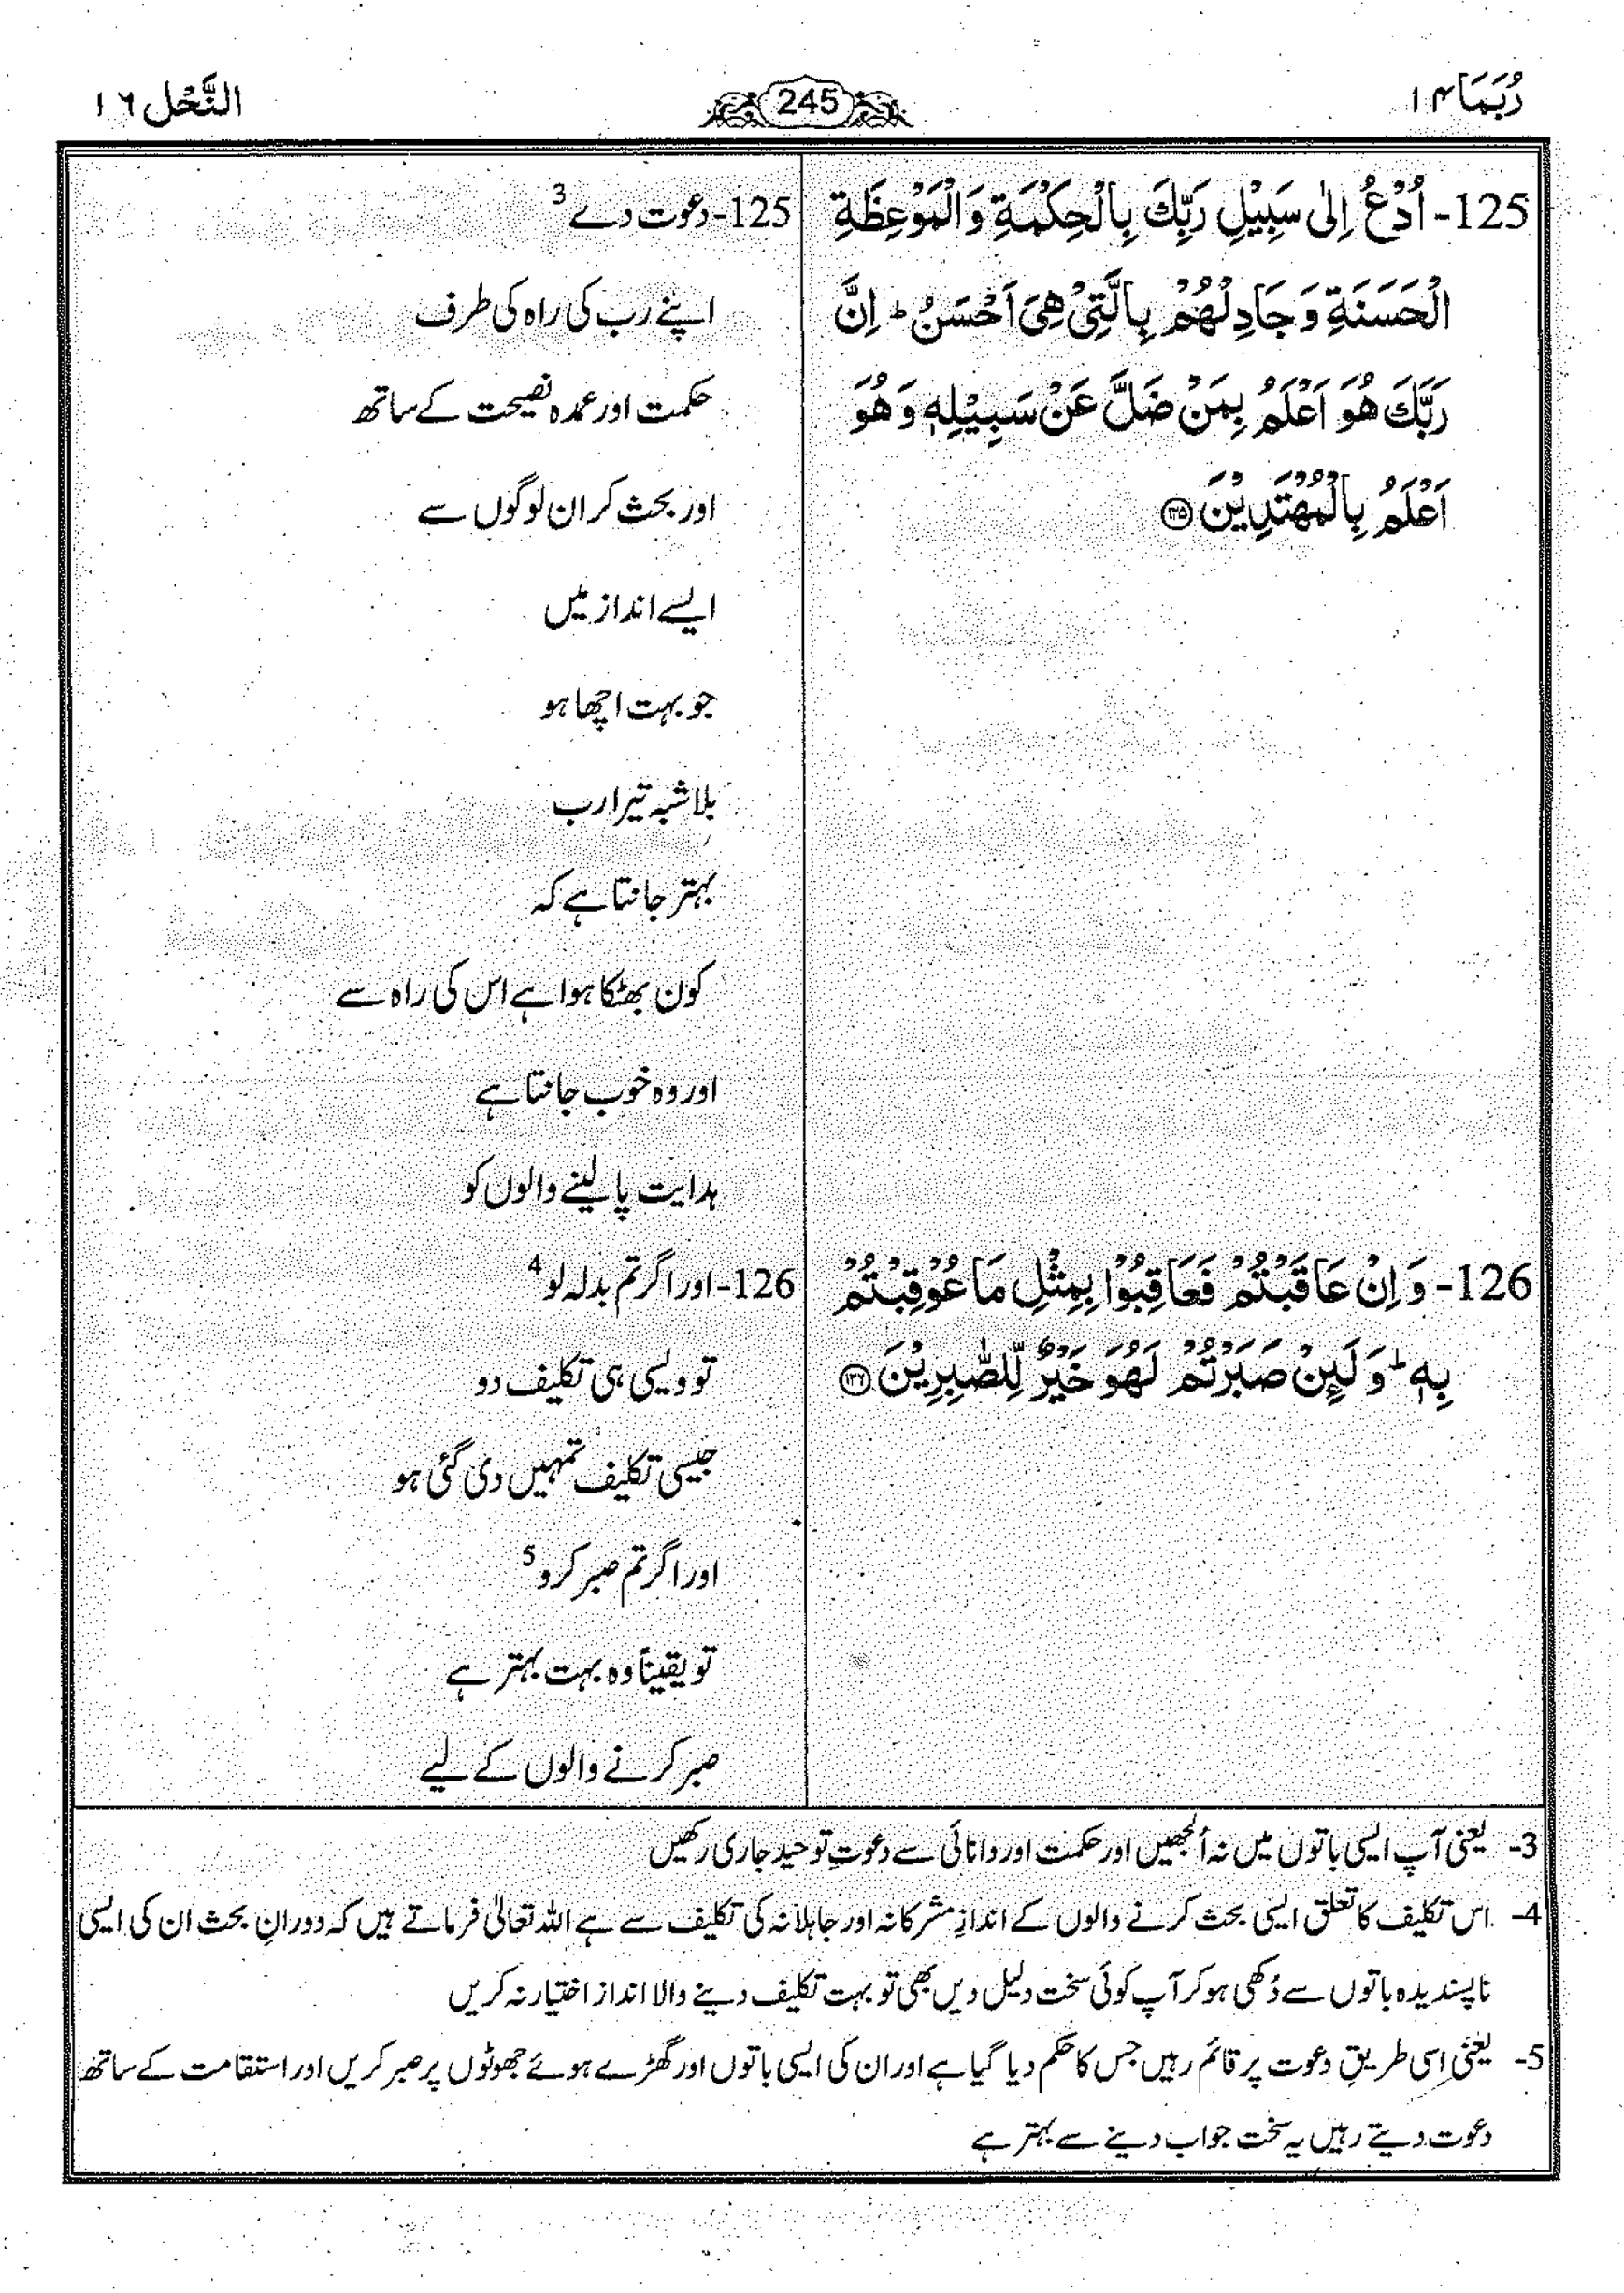 رُبَمَا ۱۴
245
النَّحْل ۱۶
125- اُدْعُ اِلٰى سَبِيْلِ رَبِّكَ بِالْحِكْمَةِ وَالْمَوْعِظَةِ
الْحَسَنَةِ وَجَادِلْهُمْ بِالَّتِيْ هِيَ اَحْسَنُ ؕ اِنَّ
رَبَّكَ هُوَ اَعْلَمُ بِمَنْ ضَلَّ عَنْ سَبِيْلِهٖ وَهُوَ
اَعْلَمُ بِالْمُهْتَدِيْنَ ۝۱۲۵
125- دعوت دے 3
اپنے رب کی راہ کی طرف
حکمت اور عمدہ نصیحت کے ساتھ
اور بحث کر ان لوگوں سے
ایسے انداز میں
جو بہت اچھا ہو
بلا شبہ تیرا رب
بہتر جانتا ہے کہ
کون بھٹکا ہوا ہے اس کی راہ سے
اور وہ خوب جانتا ہے
ہدایت پا لینے والوں کو
126- وَ اِنْ عَاقَبْتُمْ فَعَاقِبُوْا بِمِثْلِ مَا عُوْقِبْتُمْ
بِهٖ ؕ وَ لَىِٕنْ صَبَرْتُمْ لَهُوَ خَيْرٌ لِّلصّٰبِرِيْنَ ۝۱۲۶
126- اور اگر تم بدلہ لو 4
تو ویسی ہی تکلیف دو
جیسی تکلیف تمہیں دی گئی ہو
اور اگر تم صبر کرو 5
تو یقیناً وہ بہت بہتر ہے
صبر کرنے والوں کے لیے
3- یعنی آپ ایسی باتوں میں نہ اُلجھیں اور حکمت اور دانائی سے دعوتِ توحید جاری رکھیں
4- اس تکلیف کا تعلق ایسی بحث کرنے والوں کے اندازِ مشرکانہ اور جاہلانہ کی تکلیف سے ہے اللہ تعالیٰ فرماتے ہیں کہ دورانِ بحث ان کی ایسی
ناپسندیدہ باتوں سے دُکھی ہو کر آپ کوئی سخت دلیل دیں بھی تو بہت تکلیف دینے والا انداز اختیار نہ کریں
5- یعنی اِسی طریقِ دعوت پر قائم رہیں جس کا حکم دیا گیا ہے اور ان کی ایسی باتوں اور گھڑے ہوئے جھوٹوں پر صبر کریں اور استقامت کے ساتھ
دعوت دیتے رہیں یہ سخت جواب دینے سے بہتر ہے